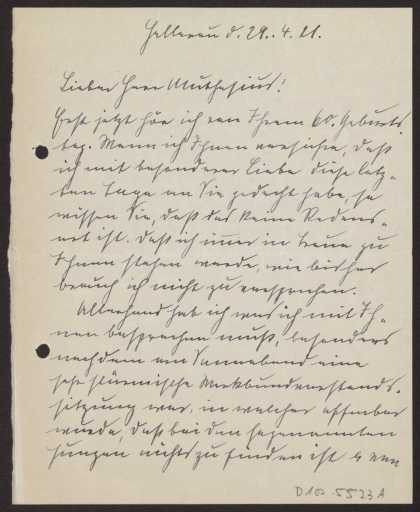 Hellerau d. 29. 4. 21.
Lieber Herr Muthesius!
Erst jetzt hör ich von Ihrem 60. Geburts-
tag. Wenn ich Ihnen versichre, daß
ich mit besonderer Liebe diese letz-
ten Tage an Sie gedacht habe, so
wissen Sie, daß das keine Redens-
art ist. Daß ich immer in Treue zu
Ihnen stehen werde, wie bisher
brauch ich nicht zu versprechen.
Allerhand hab ich was ich mit Ih-
nen besprechen muß, besonders
nachdem am Sonnabend eine
sehr stürmische Werkbundvorstands-
sitzung war, in welcher offenbar
wurde, daß bei den sogenannten
Jungen nichts zu finden ist u von
D 102-5523 A